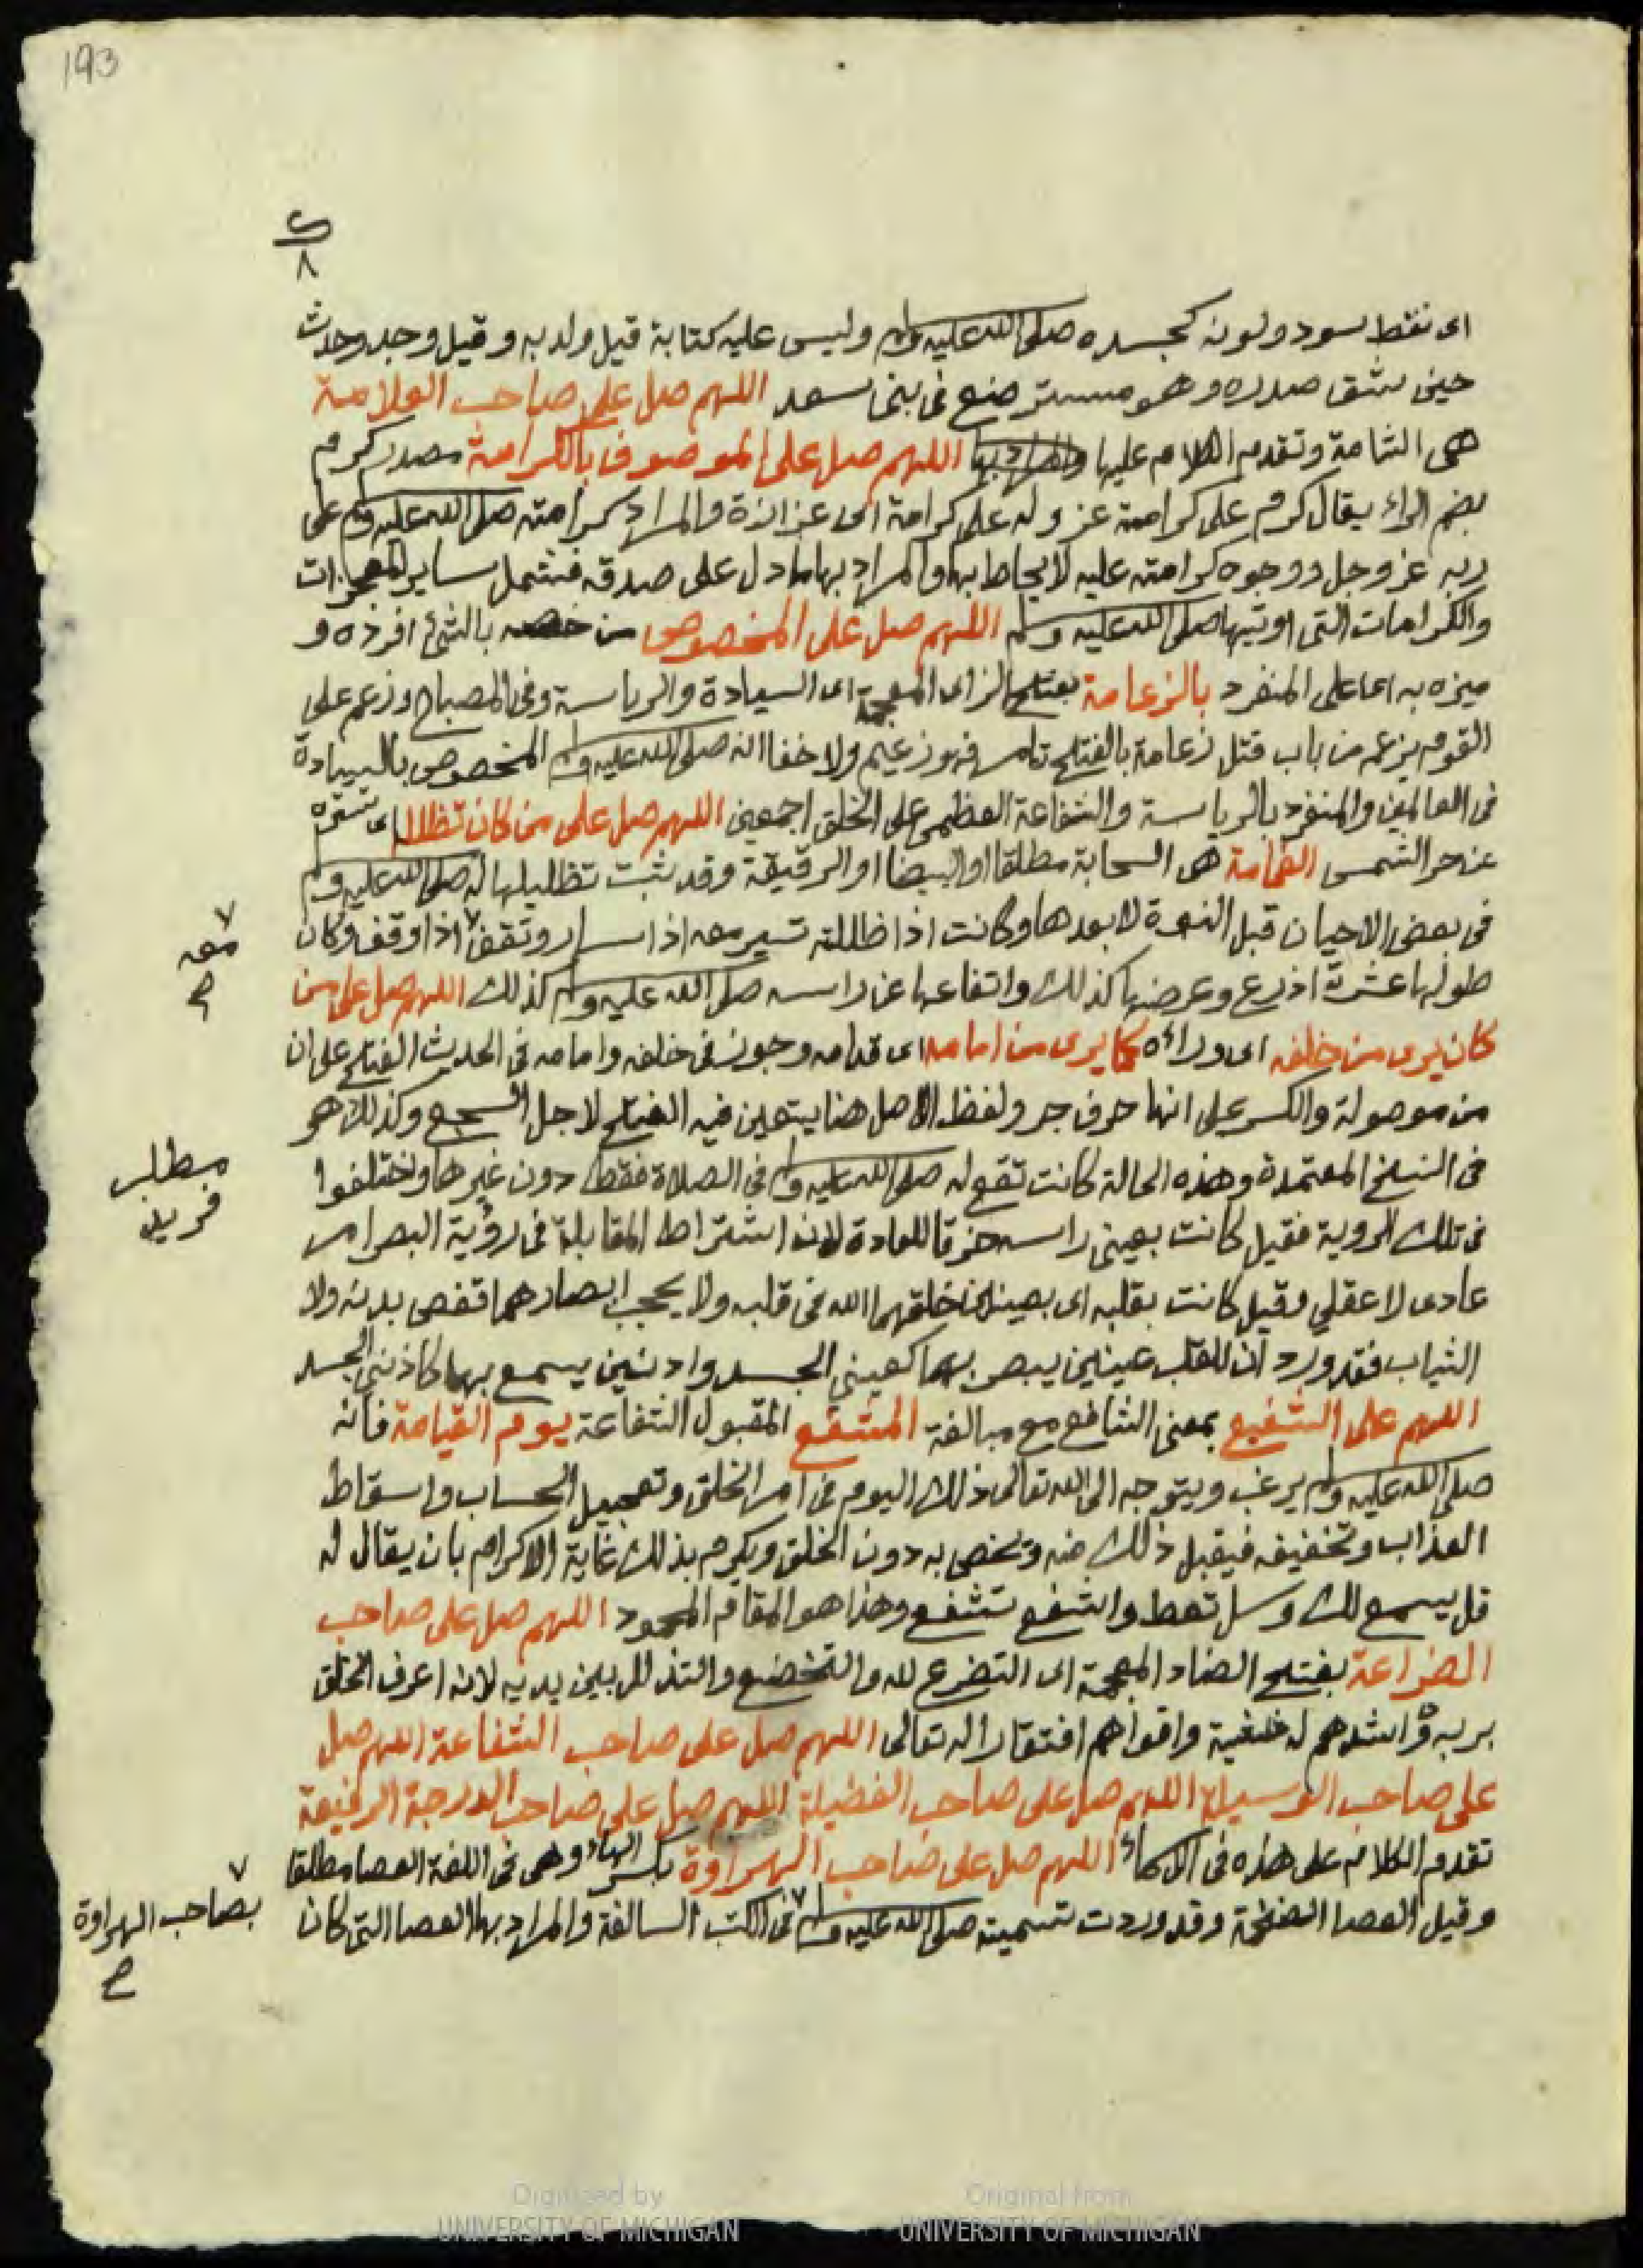 193
اى نقط سود ولونه كجسده صلى الله عليه وسلم وليس عليه كتابة قيل ولد به وقيل وجد وحدث
حين شق صدره وهو مسترضع فى بنى سعد اللهم صل على صاحب العلامة
هى الشامة وتقدم الكلام عليها اللهم صل على الموصوف بالكرامة مصدر كرم
بضم الراء يقال كرم على كرامة عز وله على كرامة اى عزازة والمراد كرامته صلى الله عليه وسلم على
ربه عز وجل ووجوه كرامته عليه لا يحاط بها والمراد بها ما دل على صدقه فتشمل ساير المعجزات
والكرامات التى اوتيها صلى الله عليه وسلم اللهم صل على المخصوص من خصه بالشئ افرده و
ميزه به اى على المنفرد بالزعامة بفتح الزاى المعجمة اى السيادة والرياسة وفى المصباح وزعم على
القوم يزعم من باب قتل زعامة بالفتح تامر فهو زعيم ولا خفا انه صلى الله عليه وسلم المخصوص بالسيادة
فى العالمين والمنفرد بالرياسة والشفاعة العظمى على الخلق اجمعين اللهم صل على من كان تظلله اى تستره
عن حر الشمس الغمامة هى السحابة مطلقا او البيضا او الرقيقة وقد ثبت تظليلها له صلى الله عليه وسلم
فى بعض الاحيان قبل النبوة لا بعدها وكانت اذا ظللته تسير معه اذا سار وتقف اذا وقف وكان
معه
صح
طولها عشرة اذرع وعرضها كذلك وارتفاعها عن راسه صلى الله عليه وسلم كذلك اللهم صل على من
كان يرى من خلفه اى وراءه كما يرى من امامه اى قدامه وجوز فى خلفه وامامه فى الحديث الفتح على ان
من موصولة والكسر على انها حرف جر ولفظ الاصل هنا يتعين فيه الفتح لاجل السجع وكذلك هو
فى النسخ المعتمدة وهذه الحالة كانت تقع له صلى الله عليه وسلم فى الصلاة فقط دون غيرها واختلفوا
مطلب
فريد
فى تلك الروية فقيل كانت بعينى راسه خرقا للعادة لان اشتراط المقابلة فى رؤية البصر امر
عادى لا عقلي وقيل كانت بقلبه اى بعينين خلقهما الله فى قلبه ولا يحجب ابصارهما قفص بدنه ولا
الثياب فقد ورد ان للقلب عينين يبصر بهما كعيني الجسد واذنين يسمع بهما كاذنى الجسد
اللهم على الشفيع بمعنى الشافع مع مبالغة المشفع المقبول الشفاعة يوم القيامة فانه
صلى الله عليه وسلم يرغب ويتوجه الى الله تعالى ذلك اليوم فى امر الخلق وتعجيل الحساب واسقاط
العذاب وتخفيفه فيقبل ذلك منه ويخص به دون الخلق ويكرم بذلك غاية الاكرام بان يقال له
قل يسمع لك وسل تعط واشفع تشفع وهذا هو المقام المحمود اللهم صل على صاحب
الضراعة بفتح الضاد المعجمة اى التضرع لله والتخضع والتذلل بين يديه لانه اعرف الخلق
بربه واشدهم له خشية واقواهم افتقارا له تعالى اللهم صل على صاحب الشفاعة اللهم صل
على صاحب الوسيلة اللهم صل على صاحب الفضيلة اللهم صل على صاحب الدرجة الرفيعة
تقدم الكلام على هذه فى الاسماء اللهم صل على صاحب الهراوة بكسر الهاء وهى فى اللغة العصا مطلقا
وقيل العصا الضخمة وقد وردت تسميته صلى الله عليه وسلم فى الكتب السالفة والمراد بها العصا التى كان
بصاحب الهراوة
صح
Digitized by
UNIVERSITY OF MICHIGAN
Original from
UNIVERSITY OF MICHIGAN